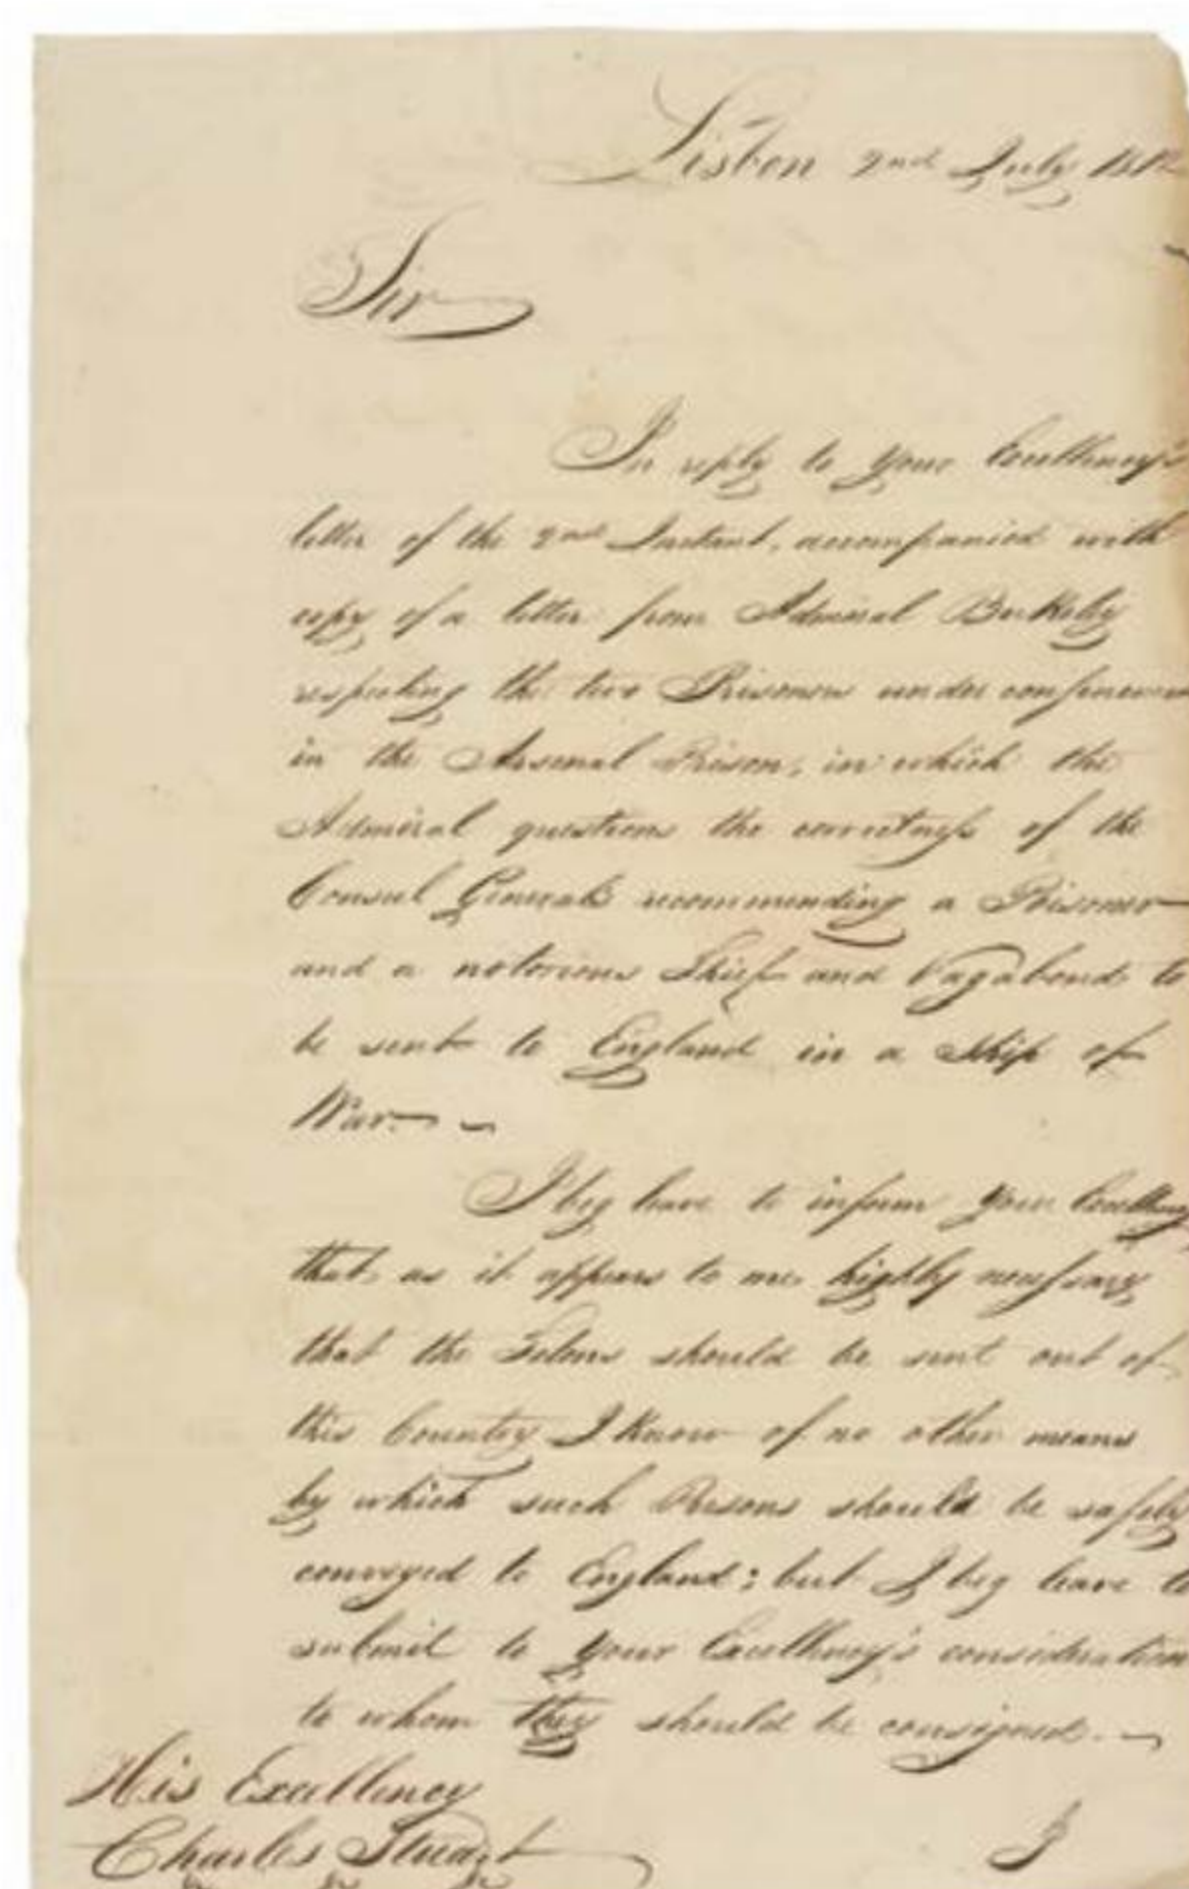 Lisbon 2nd July 1812
Sir
In reply to your Excellency's
letter of the 2nd Instant, accompanied with
copy of a letter from Admiral Berkeley
respecting the two Prisoners under confinement
in the Arsenal Prison, in which the
Admiral questions the correctness of the
Consul Generals recommending a Prisoner
and a notorious Thief and Vagabond to
be sent to England in a Ship of
War.
I beg leave to inform your Excellency
that, as it appears to me highly necessary
that the Felons should be sent out of
this Country I know of no other means
by which such Persons should be safely
conveyed to England; but I beg leave to
submit to your Excellency's consideration
to whom they should be consigned.
His Excellency
Charles Stuart
I